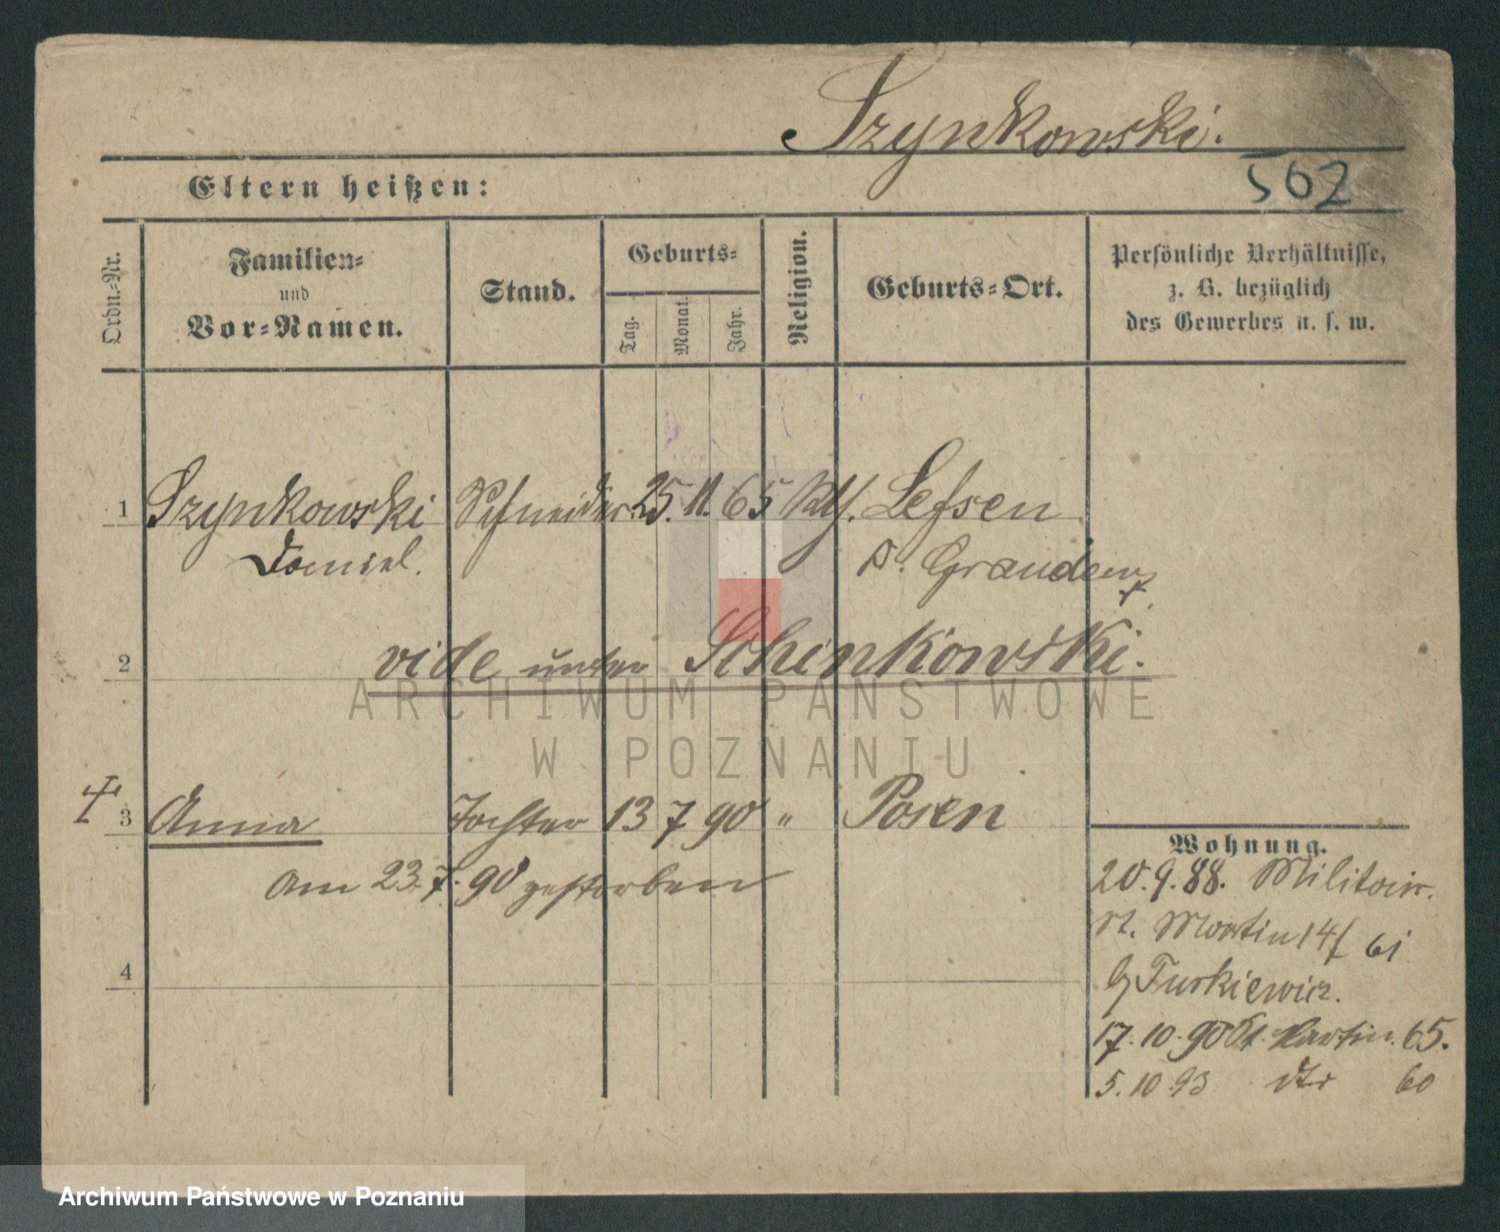 Szynkowski.
Eltern heißen:
562
Ordn.-Nr.
Familien-
und
Vor-Namen.
Stand.
Geburts-
Tag.
Monat.
Jahr.
Religion.
Geburts-Ort.
Persönliche Verhältnisse,
z. B. bezüglich
des Gewerbes u. s. w.
1 Szynkowski Schneider 25. 11. 65 Kth. Lessen
Daniel. Kr. Graudenz
2 vide unter Schinkowski.
ARCHIWUM PAŃSTWOWE
W POZNANIU
3 Anna Tochter 13 7 90 " Posen
am 23. 7. 90 gestorben
4
Wohnung.
20. 9. 88. Militair.
St. Martin 14/ 61
b/ Turkiewicz.
17. 10. 90 St. Martin. 65.
5. 10 93 dto 60
Archiwum Państwowe w Poznaniu